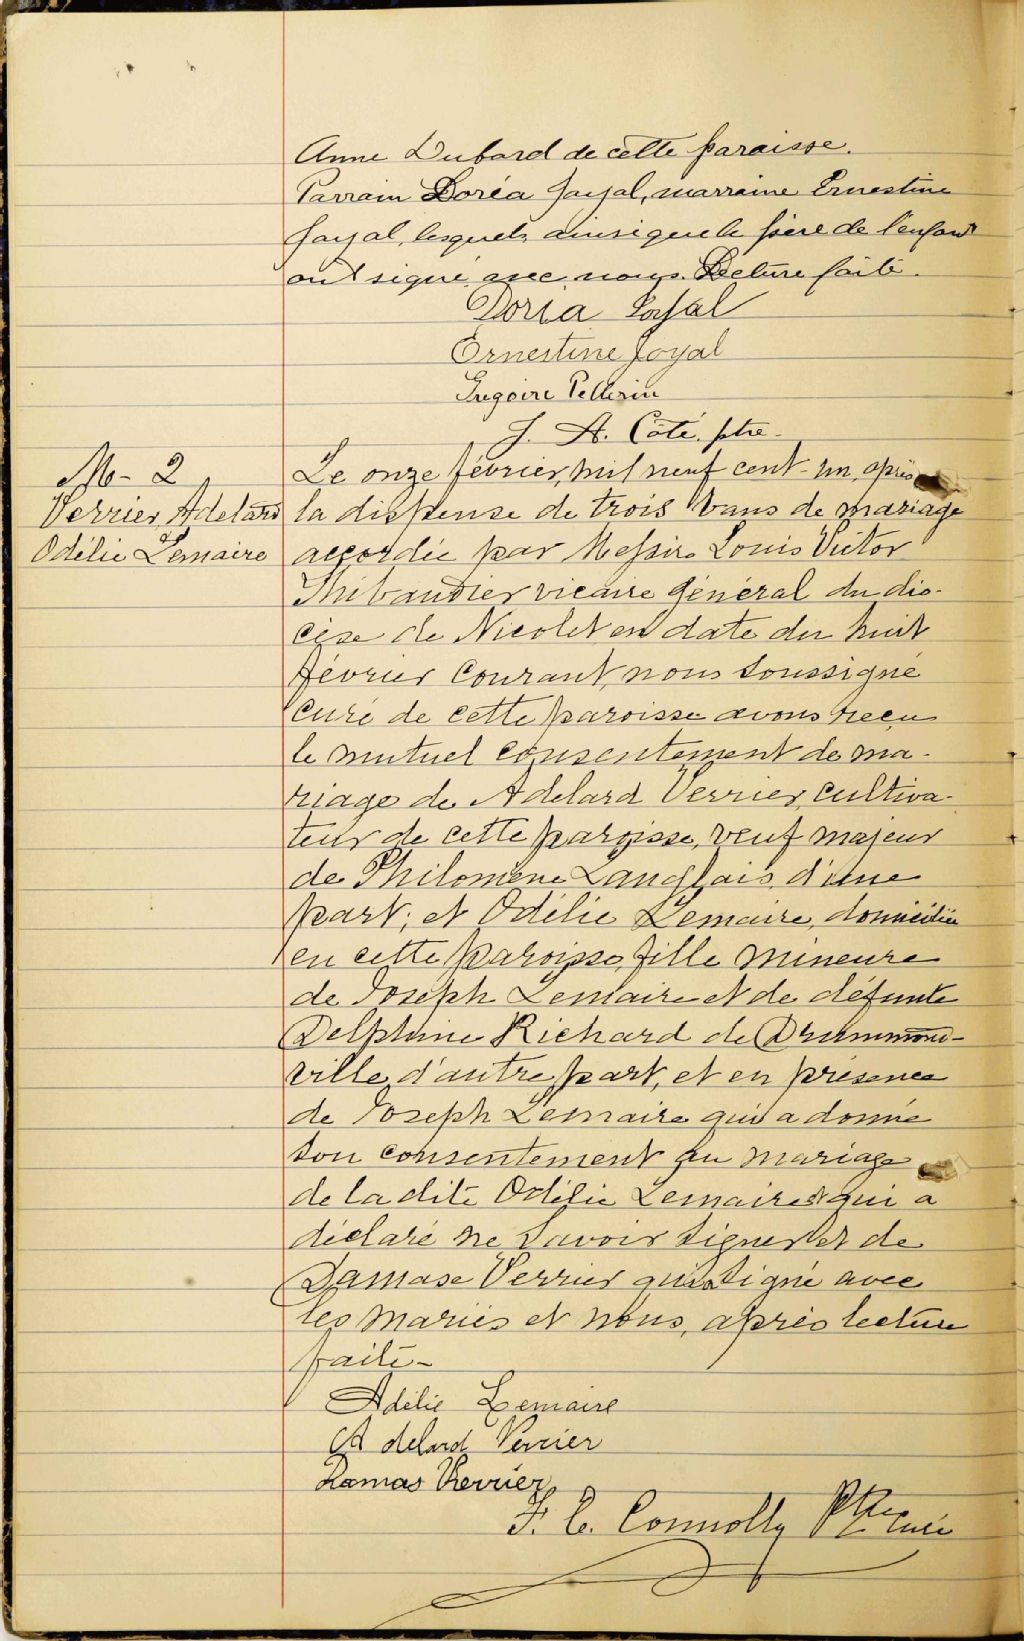 Anne Dubord de cette paroisse.
Parrain Doréa Joyal, marraine Ernestine
Joyal, lesquels ainsi que le père de l'enfant
ont signé avec nous. Lecture faite.
Doria Joyal
Ernestine Joyal
Gregoire Pellerin
J. A. Côté, ptre.
M - 2
Verrier Adelard
Odélie Lemaire
Le onze février, mil neuf cent-un, après
la dispense de trois bans de mariage
accordée par Messire Louis Victor
Thibaudier vicaire général du dio-
cèse de Nicolet en date du huit
février courant, nous soussigné
curé de cette paroisse avons reçu
le mutuel consentement de ma-
riage de Adelard Verrier, cultiva-
teur de cette paroisse, veuf majeur
de Philomène Langlais, d'une
part; et Odélie Lemaire, domiciliée
en cette paroisse, fille mineure
de Joseph Lemaire et de défunte
Delphine Richard de Drummond-
ville, d'autre part, et en présence
de Joseph Lemaire qui a donné
son consentement au mariage
de la dite Odélie Lemaire & qui a
déclaré ne savoir signer et de
Damase Verrier qui a signé avec
les mariés et nous, après lecture
faite-
Adélie Lemaire
Adelard Verrier
Damas Verrier
F. C. Connolly Ptre Curé